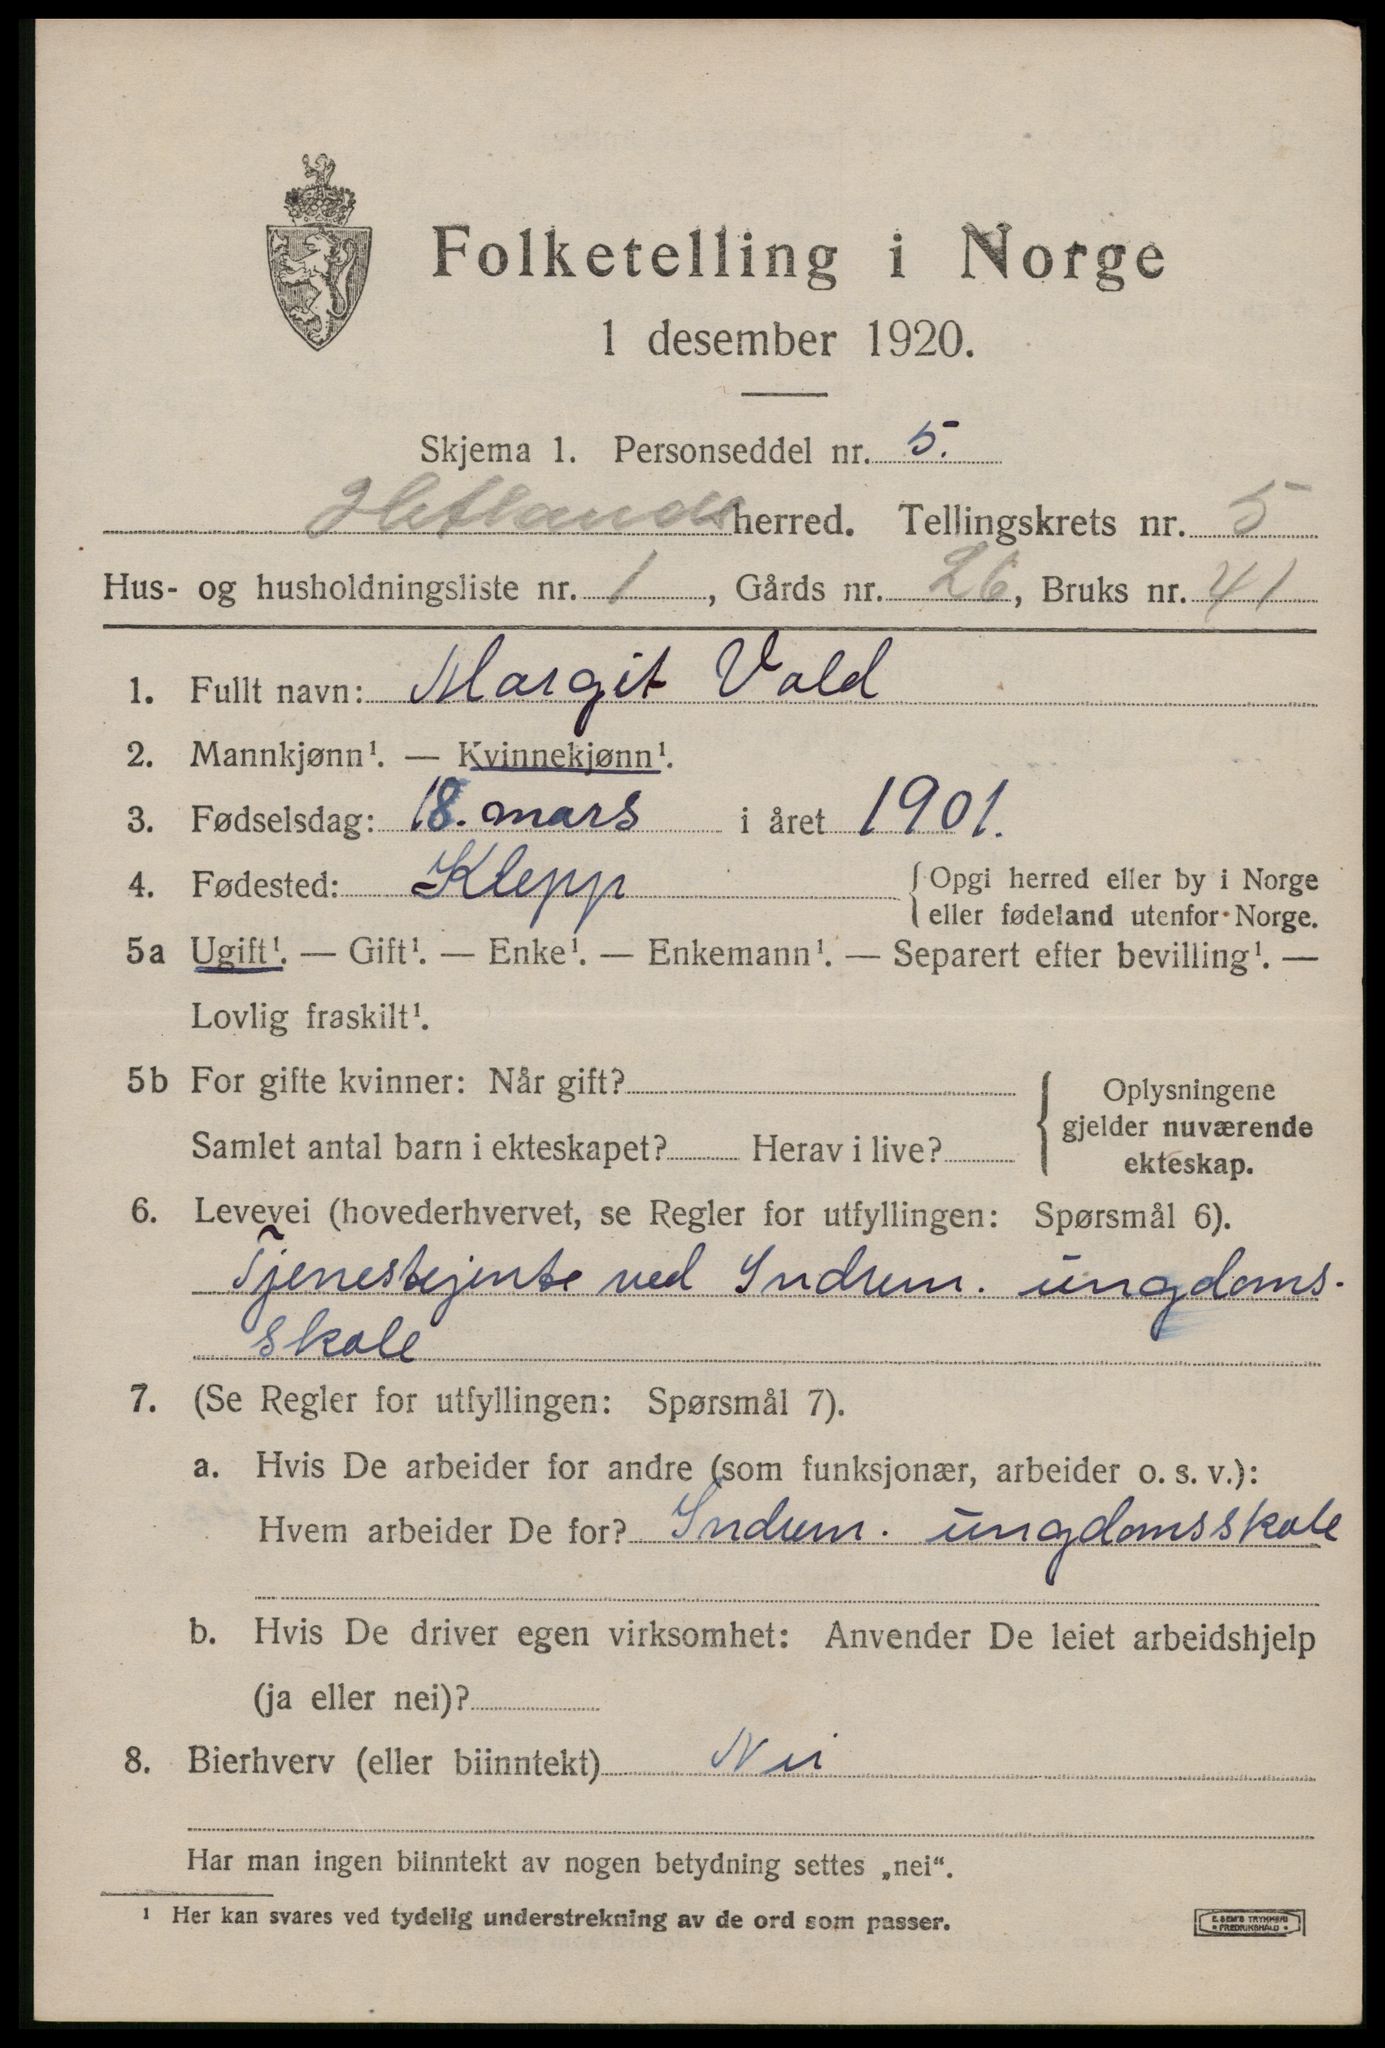 Folketelling i Norge
1 desember 1920.
Skjema 1. Personseddel nr. 5.
Hetlands herred. Tellingskrets nr. 5
Hus- og husholdningsliste nr. 1, Gårds nr. 26, Bruks nr. 41
1. Fullt navn: Margit Vold
2. Mannkjønn¹. — Kvinnekjønn¹.
3. Fødselsdag: 18. mars i året 1901.
4. Fødested: Klepp { Opgi herred eller by i Norge
eller fødeland utenfor Norge.
5a Ugift¹. — Gift¹. — Enke¹. — Enkemann¹. — Separert efter bevilling¹. —
Lovlig fraskilt¹.
5b For gifte kvinner: Når gift? { Oplysningene
gjelder nuværende
Samlet antal barn i ekteskapet? Herav i live? ekteskap.
6. Levevei (hovederhvervet, se Regler for utfyllingen: Spørsmål 6).
Tjenestejente ved Indrem. ungdoms-
skole
7. (Se Regler for utfyllingen: Spørsmål 7).
a. Hvis De arbeider for andre (som funksjonær, arbeider o. s. v.):
Hvem arbeider De for? Indrem. ungdomsskole
b. Hvis De driver egen virksomhet: Anvender De leiet arbeidshjelp
(ja eller nei)?
8. Bierhverv (eller biinntekt) Nei
Har man ingen biinntekt av nogen betydning settes „nei“.
¹ Her kan svares ved tydelig understrekning av de ord som passer.
E. SEM'S TRYKKERI
FREDRIKSHALD